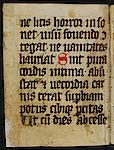 ne litis horror inso
net uisū fouendo ꝯ
tegat ne uanitates
hauriat Sint pura
cordis intima absi
stat et uecordia car
nis terat supbiam
potus cibiqꝫ pcitas
Ut cū dies abcesse